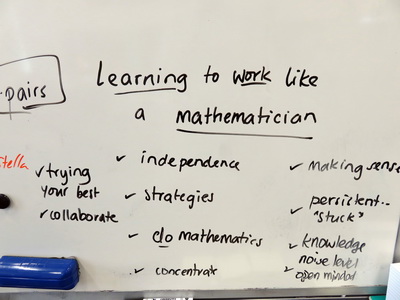 pairs
learning to work like
a mathematician
stella
✓ trying
your best
✓ collaborate
✓ independence
✓ strategies
✓ do mathematics
✓ concentrate
✓ making sense
✓ persistent..
"stuck"
✓ knowledge
noise level
✓ open minded